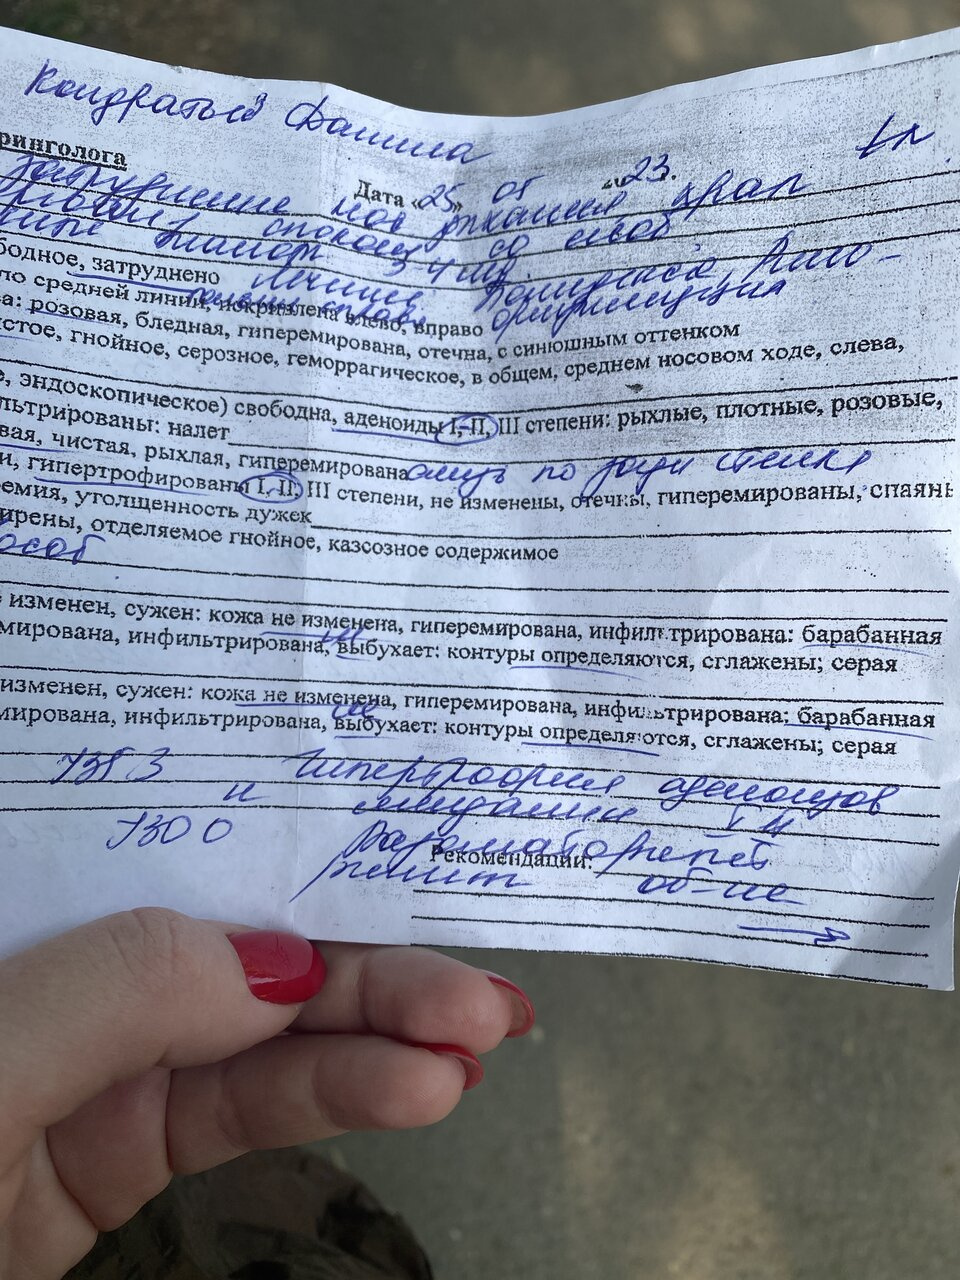 Кондратьев Данила
ринголога
Дата «25» 05 23.
затруднение нос дыхания храп
спокоен со слов
3-4
бодное, затруднено лечение Полидекса, Аква-
по средней линии, искривлена влево, вправо
ва: розовая, бледная, гиперемирована, отечна, с синюшным оттенком
истое, гнойное, серозное, геморрагическое, в общем, среднем носовом ходе, слева,
е, эндоскопическое) свободна, аденоиды I, -II, III степени: рыхлые, плотные, розовые,
льтрированы: налет
вая, чистая, рыхлая, гиперемирована слизь по задн стенке
и, гипертрофированы I, -II, III степени, не изменены, отечны, гиперемированы, спаяны
емия, утолщенность дужек
ирены, отделяемое гнойное, казсозное содержимое
особ
изменен, сужен: кожа не изменена, гиперемирована, инфильтрирована: барабанная
мирована, инфильтрирована, выбухает: контуры определяются, сглажены; серая
изменен, сужен: кожа не изменена, гиперемирована, инфильтрирована: барабанная
мирована, инфильтрирована, выбухает: контуры определяются, сглажены; серая
J35 3 Гипертрофия аденоидов
и миндалин I-II
J30 0 Вазомоторный
Рекомендации:
ринит об-ие